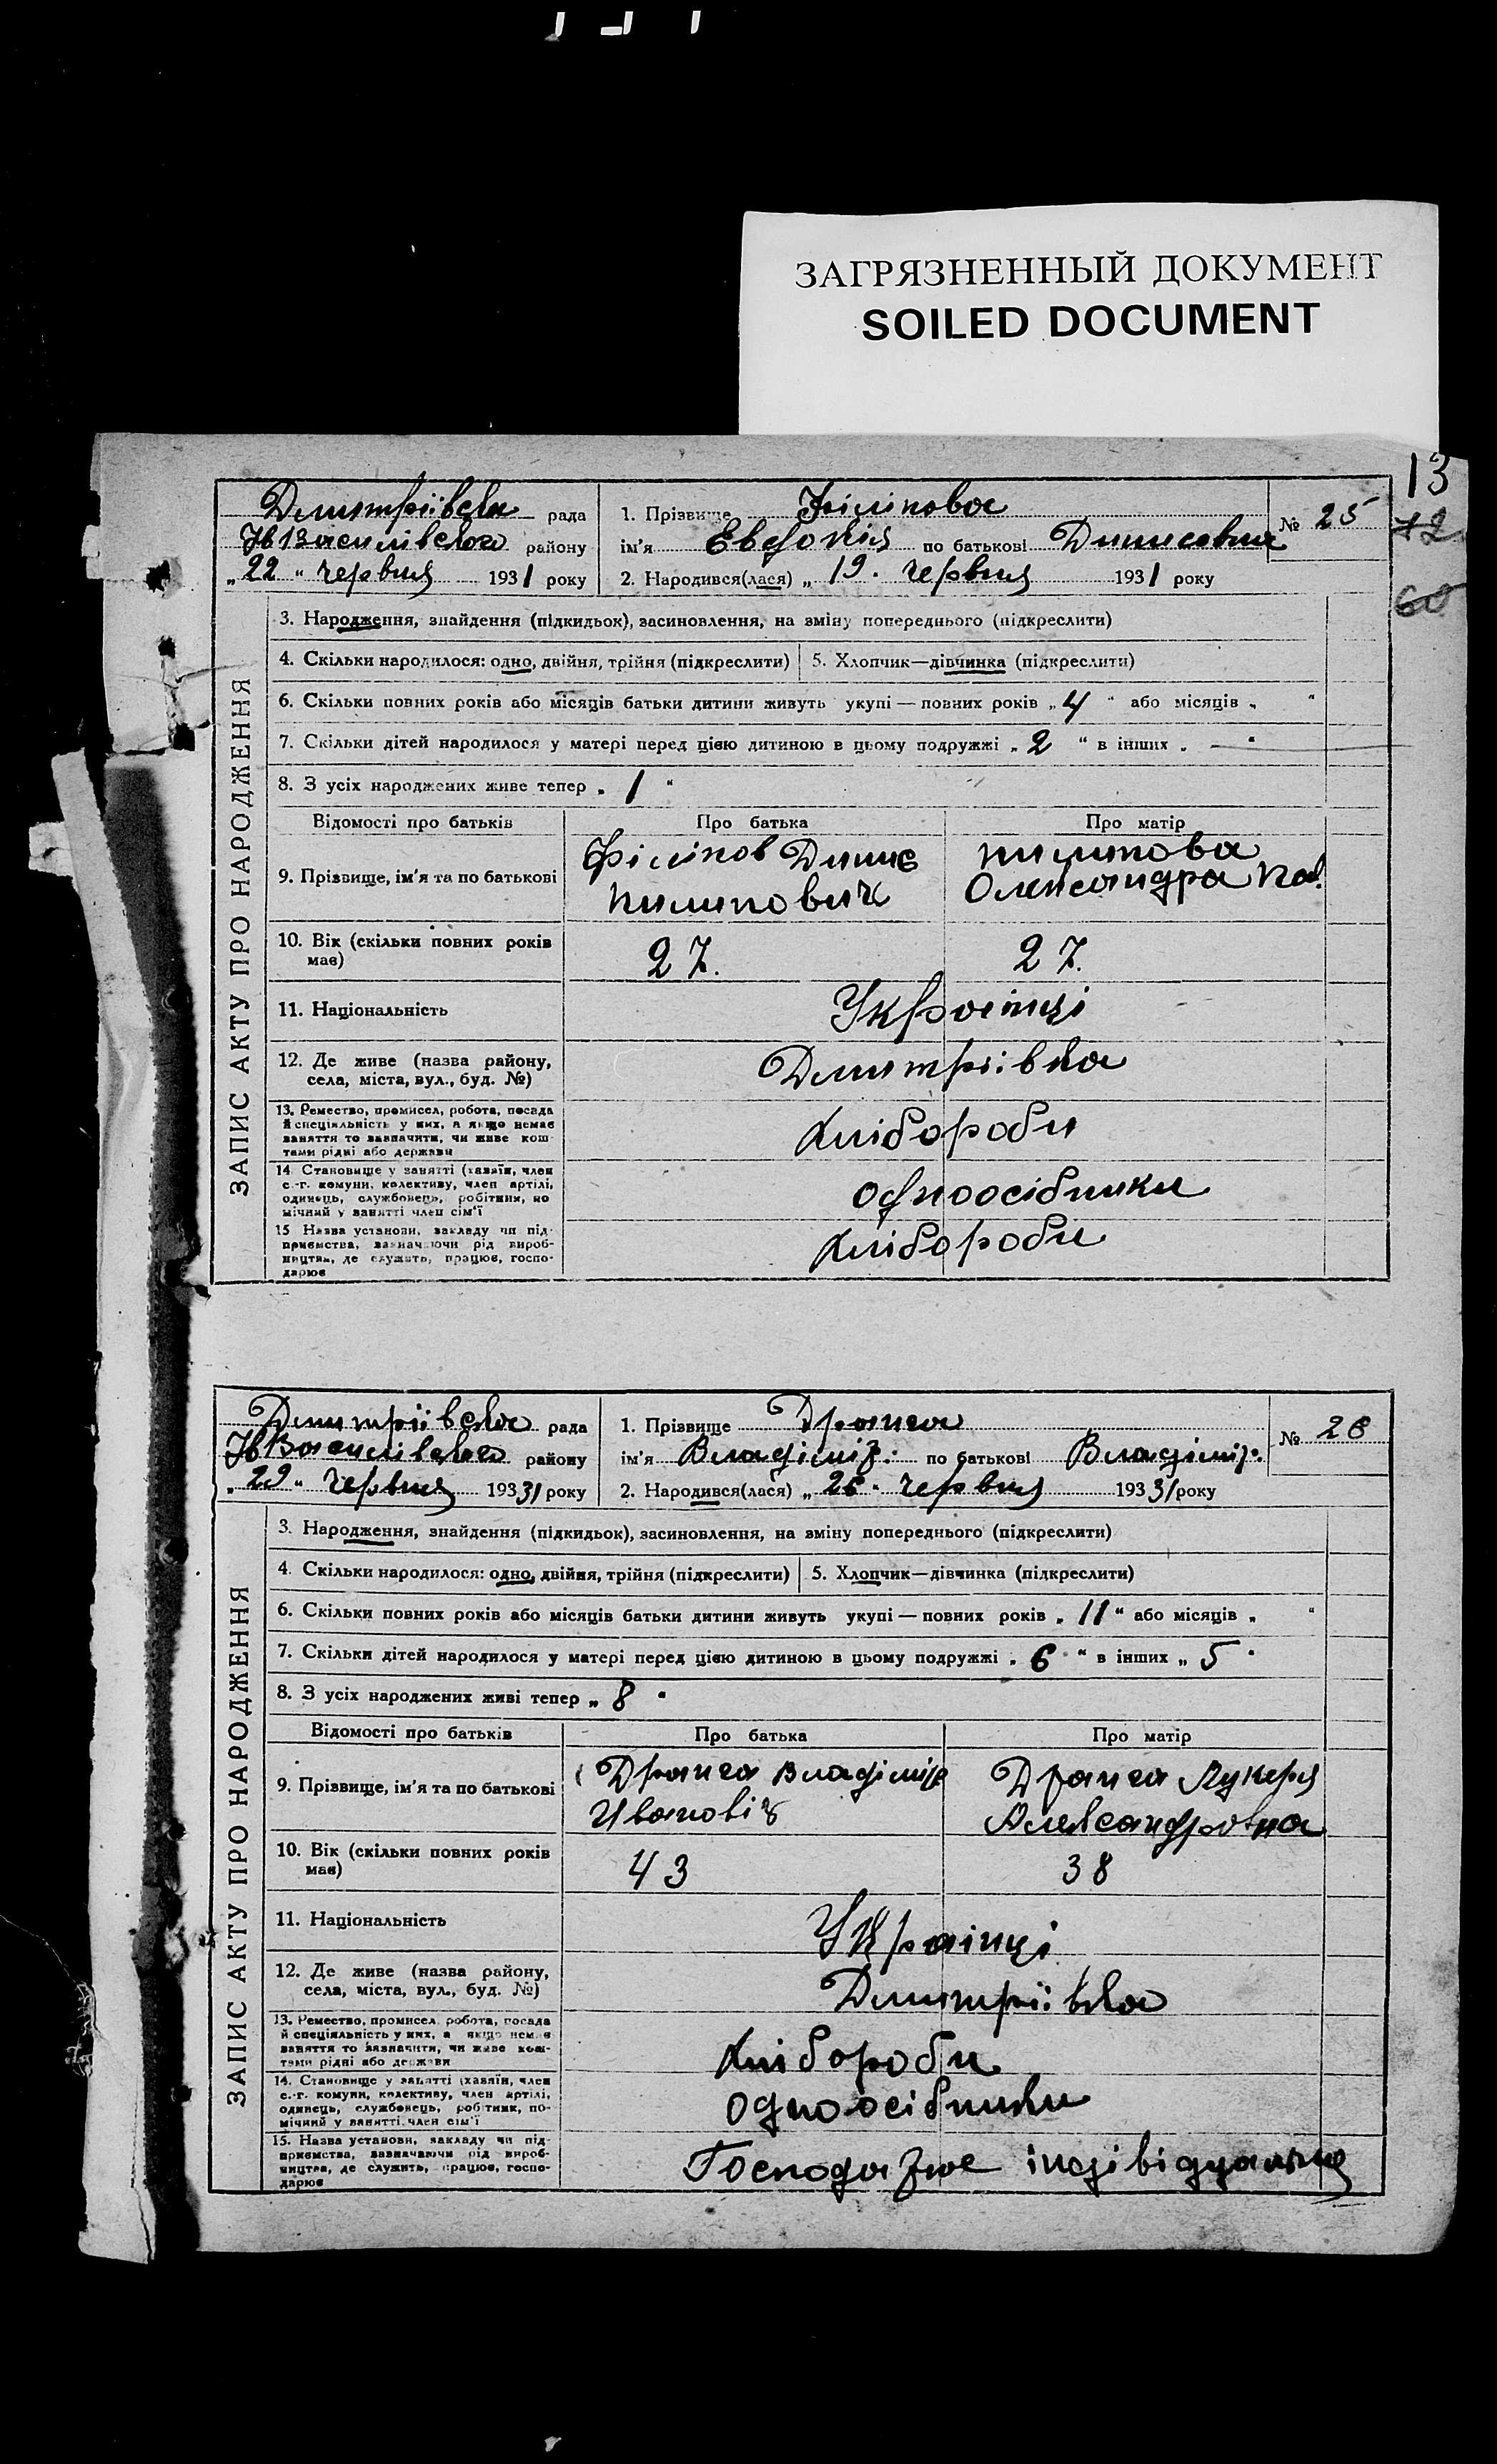 ЗАГРЯЗНЕННЫЙ ДОКУМЕНТ
SOILED DOCUMENT
13
12
60
ЗАПИС АКТУ ПРО НАРОДЖЕННЯ
Дмитріївська рада
НВасилівського району
„22“ червня 1931 року
1. Прізвище Філіпова
№ 25
ім'я Евдокія по батькові Динисовна
2. Народився(лася) „19“ червня 1931 року
3. Народження, знайдення (підкидьок), засиновлення, на зміну попереднього (підкреслити)
4. Скільки народилося: одно, двійня, трійня (підкреслити)
5. Хлопчик—дівчинка (підкреслити)
6. Скільки повних років або місяців батьки дитини живуть укупі — повних років „4“ або місяців „ “
7. Скільки дітей народилося у матері перед цією дитиною в цьому подружжі „2“ в інших „—“
8. З усіх народжених живе тепер „1“
Відомості про батьків
Про батька
Про матір
9. Прізвище, ім'я та по батькові
Філіпов Динис
Пилипович
Пилипова
Олександра Пав.
10. Вік (скільки повних років
має)
27.
27.
11. Національність
Українці
12. Де живе (назва району,
села, міста, вул., буд. №)
Дмитріївка
13. Ремество, промисел, робота, посада
й спеціяльність у них, а якщо немає
заняття то зазначити, чи живе кош-
тами рідні або держави
Хлібороби
14. Становище у занятті (хазяїн, член
с.-г. комуни, колективу, член артілі,
одинець, службовець, робітник, по
мічний у занятті член сім'ї
одноосібники
15 Назва установи, закладу чи під-
приємства, зазначаючи рід вироб-
ництва, де служить, працює, госпо-
дарює
Хлібороби
ЗАПИС АКТУ ПРО НАРОДЖЕННЯ
Дмитріївська рада
НВасилівського району
„29“ червня 19331 року
1. Прізвище Дранга
№ 26
ім'я Владімір. по батькові Владімір.
2. Народився(лася) „26“ червня 19331 року
3. Народження, знайдення (підкидьок), засиновлення, на зміну попереднього (підкреслити)
4. Скільки народилося: одно, двійня, трійня (підкреслити)
5. Хлопчик—дівчинка (підкреслити)
6. Скільки повних років або місяців батьки дитини живуть укупі — повних років „11“ або місяців „ “
7. Скільки дітей народилося у матері перед цією дитиною в цьому подружжі „6“ в інших „5“
8. З усіх народжених живі тепер „8“
Відомості про батьків
Про батька
Про матір
9. Прізвище, ім'я та по батькові
Дранга Владімір
Івановіч
Дранга Лукеря
Александровна
10. Вік (скільки повних років
має)
43
38
11. Національність
Українці
12. Де живе (назва району,
села, міста, вул., буд. №)
Дмитріївка
13. Ремество, промисел, робота, посада
й спеціяльність у них, а якщо немає
заняття то зазначити, чи живе кош-
тами рідні або держави
Хлібороби
14. Становище у занятті (хазяїн, член
с.-г. комуни, колективу, член артілі,
одинець, службовець, робітник, по-
мічний у занятті член сім'ї
одноосібники
15. Назва установи, закладу чи під-
приємства, зазначаючи рід вироб-
ництва, де служить, працює, госпо-
дарює
Господарює індівідуально